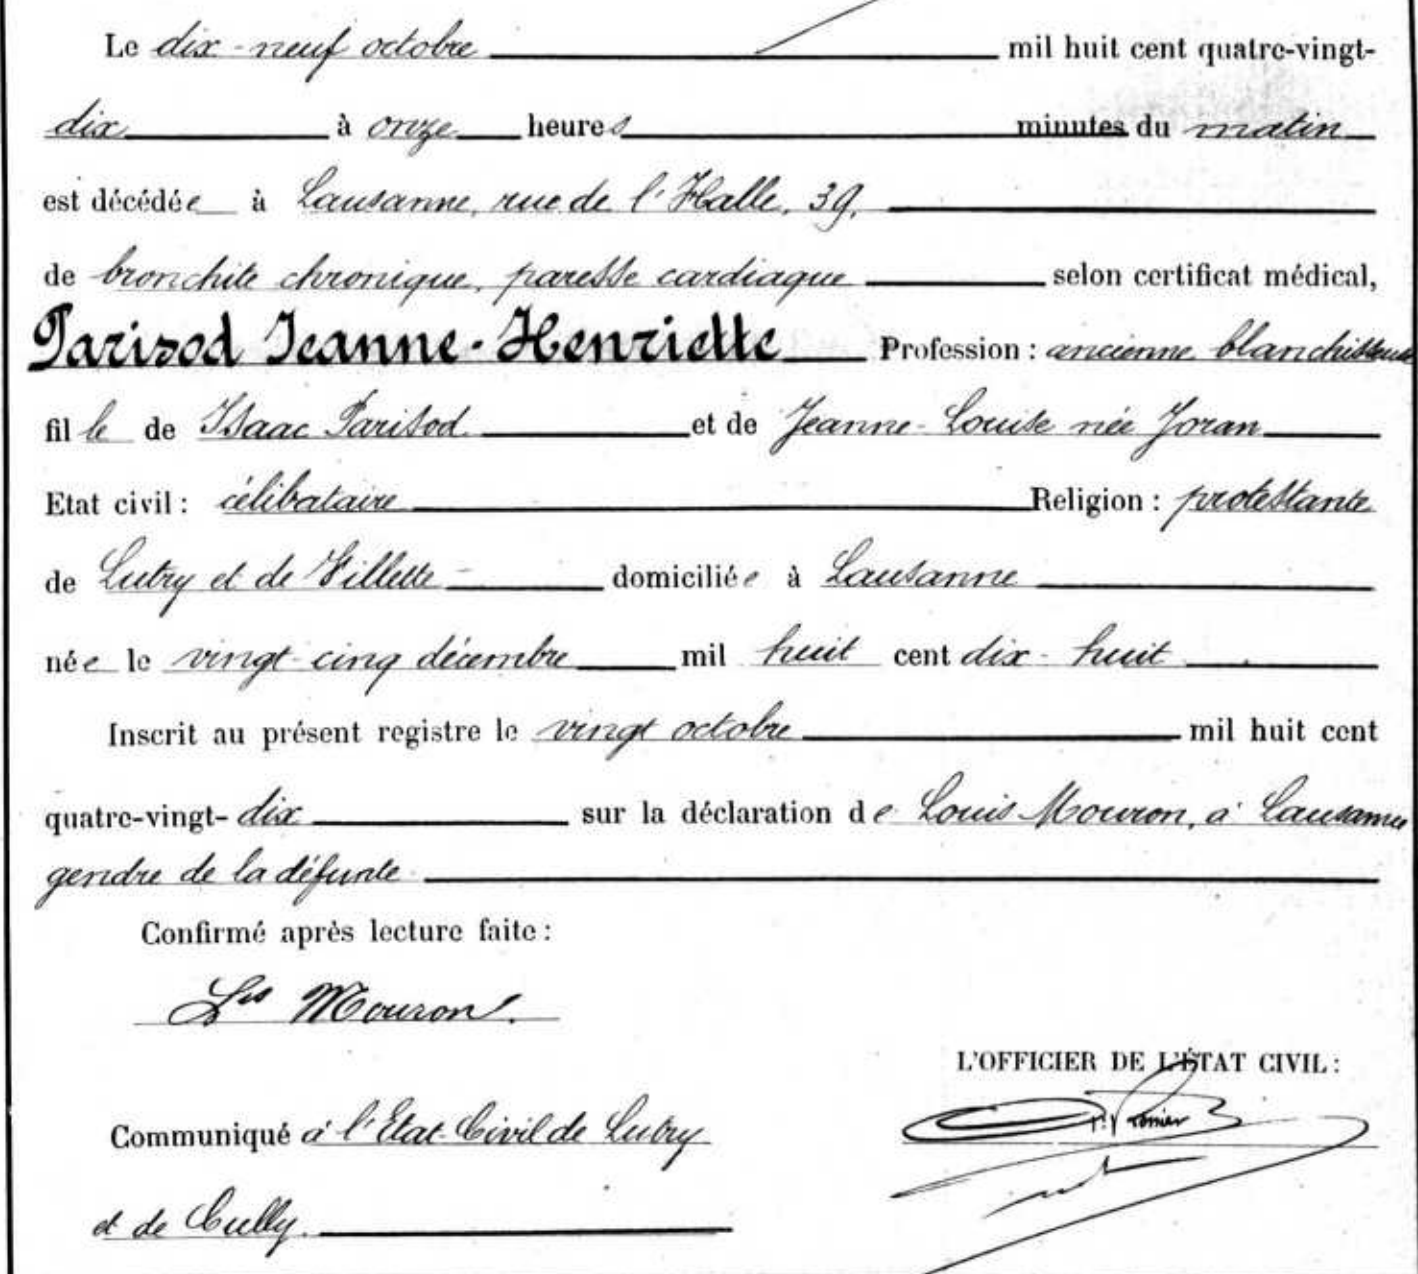 Le dix-neuf octobre mil huit cent quatre-vingt-
dix à onze heures minutes du matin
est décédée à Lausanne, rue de l'Halle, 39,
de bronchite chronique, paresse cardiaque selon certificat médical,
Parisod Jeanne-Henriette Profession : ancienne blanchisseuse
fille de Isaac Parisod et de Jeanne-Louise née Joran
Etat civil : célibataire Religion : protestante
de Lutry et de Villette domiciliée à Lausanne
née le vingt-cinq décembre mil huit cent dix-huit
Inscrit au présent registre le vingt octobre mil huit cent
quatre-vingt-dix sur la déclaration de Louis Mouron, à Lausanne
gendre de la défunte
Confirmé après lecture faite :
Ls Mouron.
L'OFFICIER DE L'ÉTAT CIVIL :
Communiqué à l'Etat-Civil de Lutry
et de Cully.